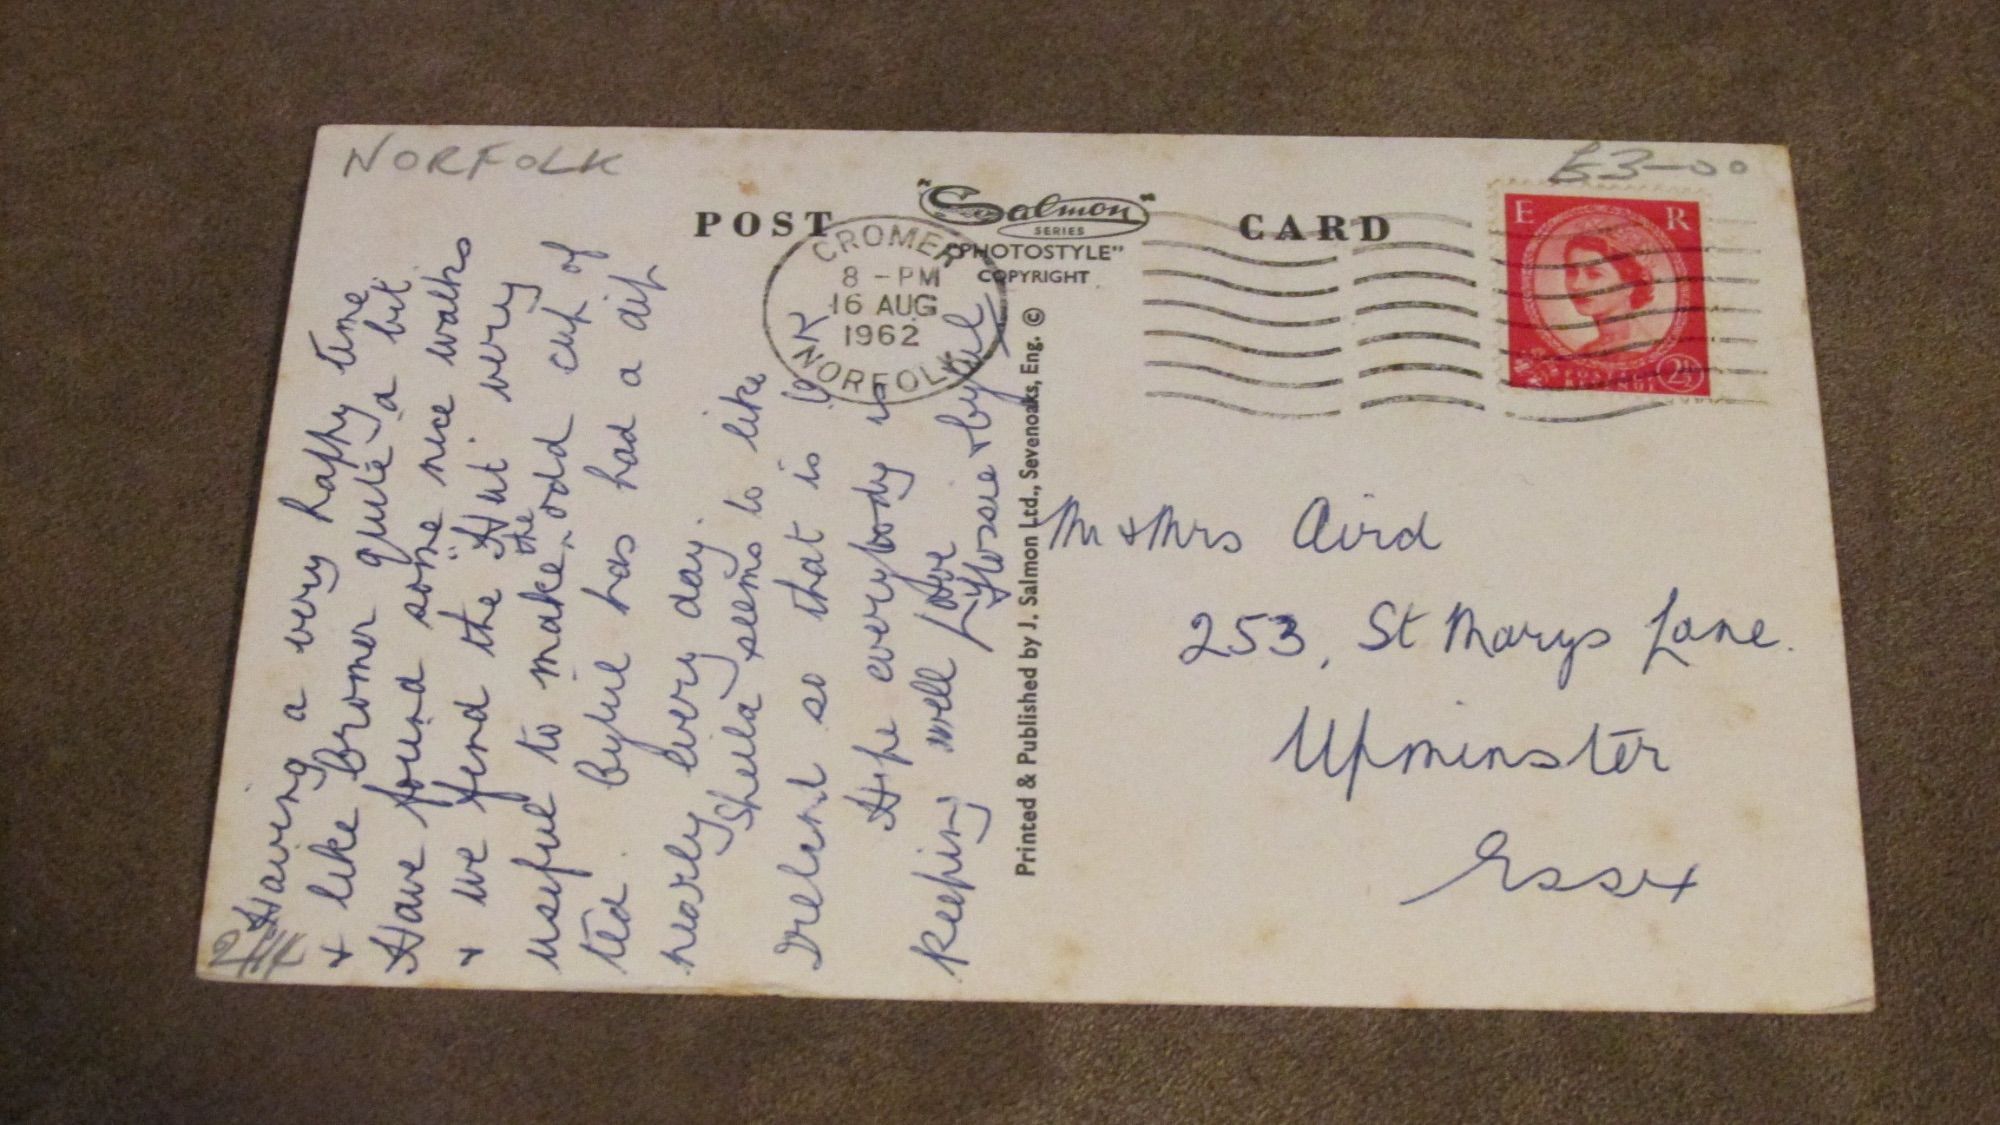 NORFOLK
£3-00
POST CARD
"Salmon"
SERIES
"PHOTOSTYLE"
COPYRIGHT
CROMER
8 - PM
16 AUG
1962
NORFOLK
E R
2½
Having a very happy time
+ like Cromer quite a bit.
Have found some nice walks
+ we find the "Hut" very
useful to make the odd cup of
tea. has had a dip
nearly every day.
Sheila seems to like
Ireland so that is
Hope everybody is
keeping well Love
Flossie +
Printed & Published by J. Salmon Ltd., Sevenoaks, Eng. ©
Mr + Mrs Aird
253, St Marys Lane.
Upminster
Essex